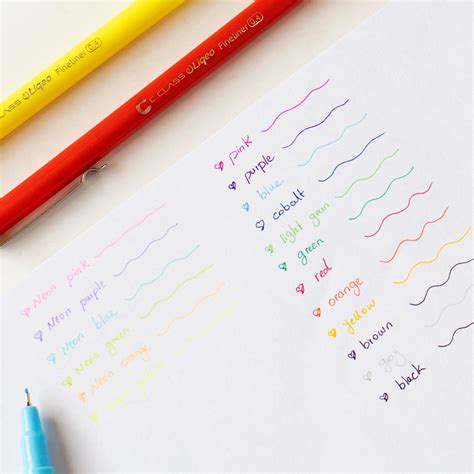 C CLASS ULiqeo Fineliner 0.4
C CLASS ULiqeo Fineliner 0.4
pink
purple
blue
cobalt
light green
green
red
orange
yellow
brown
gray
black
Neon pink
Neon purple
Neon blue
Neon green
Neon orange